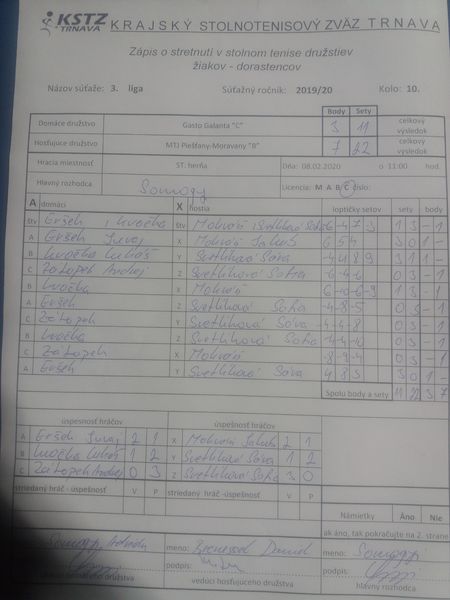 KSTZ TRNAVA KRAJSKÝ STOLNOTENISOVÝ ZVÄZ TRNAVA
Zápis o stretnutí v stolnom tenise družstiev
žiakov - dorastencov
Názov súťaže: 3. liga Súťažný ročník: 2019/20 Kolo: 10.
Body Sety
Domáce družstvo Gasto Galanta "C" 3 11 celkový výsledok
Hosťujúce družstvo MTJ Piešťany-Moravany "B" 7 22 celkový výsledok
Hracia miestnosť ST. herňa Dňa: 08.02.2020 o 11:00 hod.
Hlavný rozhodca Somogy Licencia: M A B C číslo:
A domáci X hostia loptičky setov sety body
štv Gršek štv Mokráň
A Gršek Juraj X Mokráň Jakub 6 5 4 3 0 1 -
B Kvočka Lukáš Y Svetlíková Sára 3 1 1 -
C Zatopek Andrej Z Svetlíková Sofia 0 3 - 1
B Kvočka X Mokráň 1 3 - 1
A Gršek Z Svetlíková Sofia -4 -8 -5 0 3 - 1
C Zatopek Y Svetlíková Sára -4 -4 -8 0 3 - 1
B Kvočka Z Svetlíková Sofia 0 3 - 1
C Zatopek X Mokráň -8 -9 -4 0 3 - 1
A Gršek Y Svetlíková Sára 4 8 3 3 0 1 -
Spolu body a sety 11 22 3 7
úspesnosť hráčov úspešnosť hráčov
A Gršek Juraj 2 1 X Mokráň Jakub 2 1
B Kvočka Lukáš 1 2 Y Svetlíková Sára 1 2
C Zatopek Andrej 0 3 Z Svetlíková Sofia 3 0
striedaný hráč - úspešnosť V P striedaný hráč -úspešnosť V P
Námietky Áno Nie
ak áno, tak pokračujte na 2. strane
Somogyi meno: David meno: Somogyi
podpis: podpis:
vedúci domáceho družstva vedúci hosťujúceho družstva hlavný rozhodca